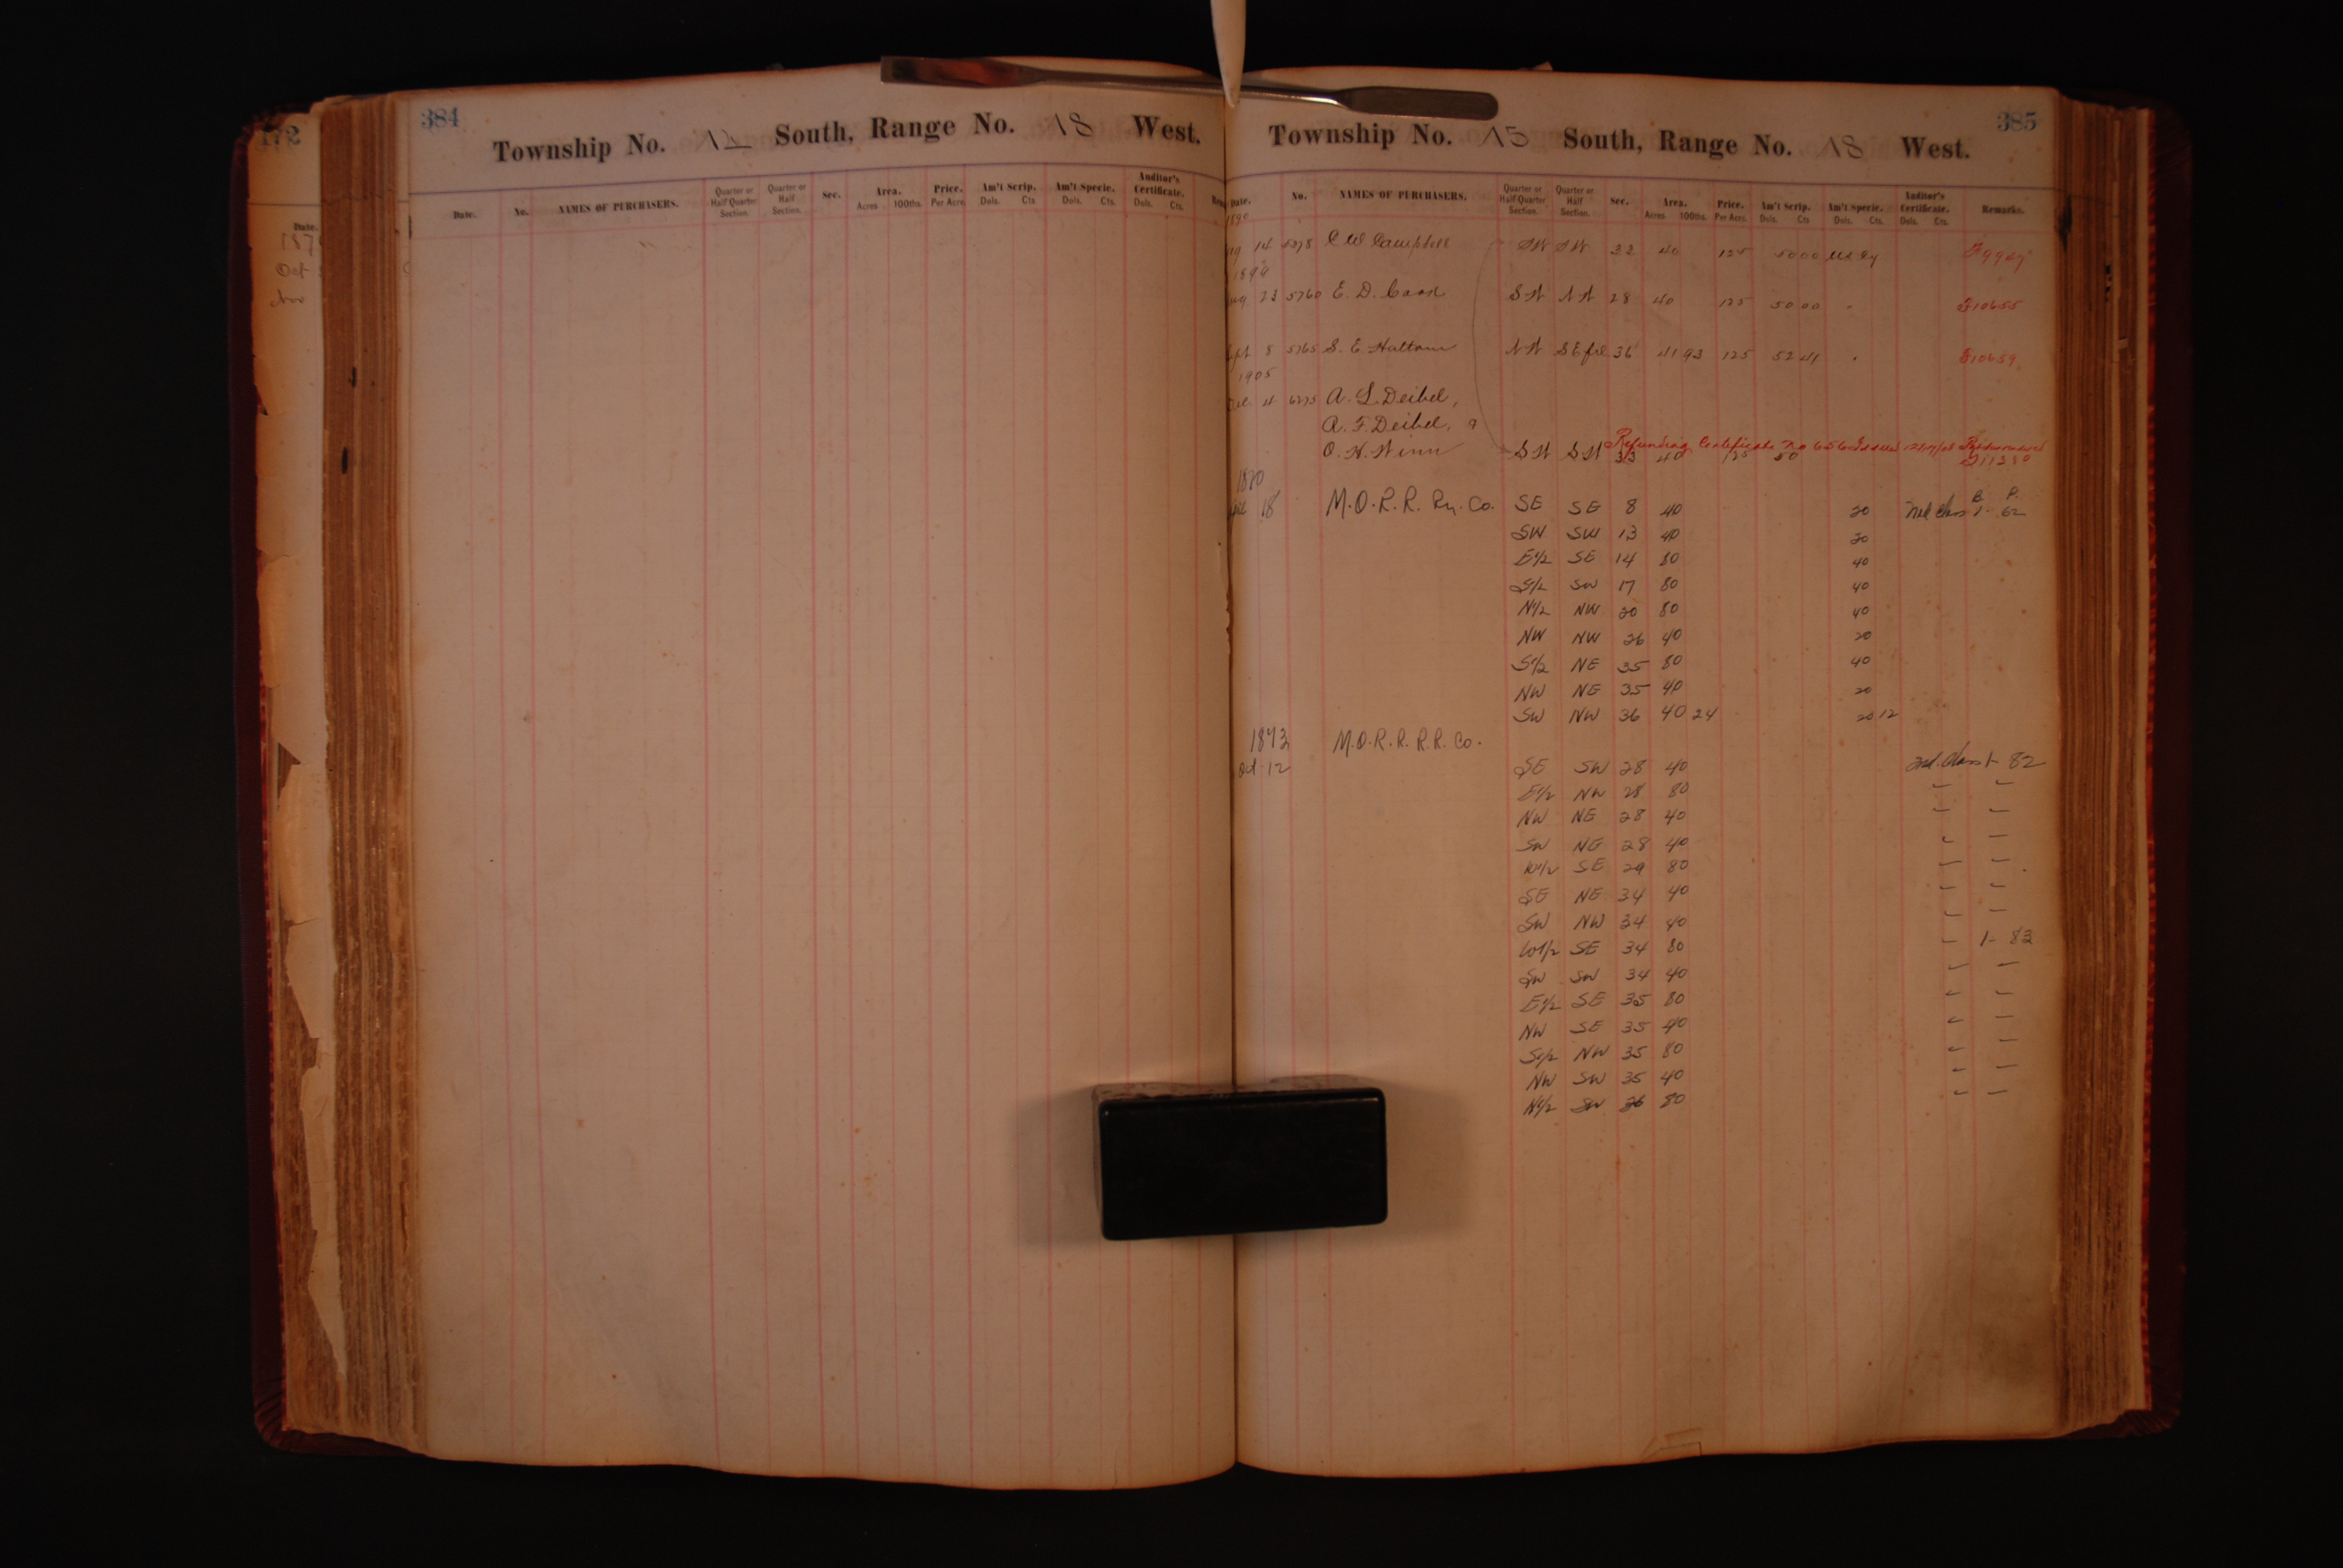 172
Date.
187
Oct
Nov
384
Township No. 12 South, Range No. 18 West.
Date. No. NAMES OF PURCHASERS. Quarter or Half Quarter Section. Quarter or Half Section. Sec. Area. Acres 100ths. Price. Per Acre. Am't Scrip. Dols. Cts. Am't Specie. Dols. Cts. Auditor's Certificate. Dols. Cts.
385
Township No. 15 South, Range No. 18 West.
Date. No. NAMES OF PURCHASERS. Quarter or Half Quarter Section. Quarter or Half Section. Sec. Area. Acres 100ths. Price. Per Acre. Am't Scrip. Dols. Cts. Am't Specie. Dols. Cts. Auditor's Certificate. Dols. Cts. Remarks.
14 C W Campbell SW SW 40 125 50 00
1899
23 5760 E. D. SW NW 28 40 125 50 00 10655
Sept 8 5765 S. E. NW SE frl 36 41 93 125 52 41 10659
1905
4 A. L. Deibel,
A. F. Deibel, &
O. H. Winn SW SW 33 40 125 50
Refunding Certificate No 656 Issued
1870
18 M.O.R.R. Ry. Co. SE SE 8 40 20 B. P. 1- 62
SW SW 13 40 20
E1/2 SE 14 80 40
S1/2 SW 17 80 40
N1/2 NW 20 80 40
NW NW 26 40 20
S1/2 NE 35 80 40
NW NE 35 40 20
SW NW 36 40 24 20 12
1873 M.O.R.R. R.R. Co.
Oct 12 SE SW 28 40 2nd. class 1- 82
E1/2 NW 28 80 " "
NW NE 28 40 " "
SW NE 28 40 " "
W1/2 SE 29 80 " "
SE NE 34 40 " "
SW NW 34 40 " "
W1/2 SE 34 80 " 1- 83
SW SW 34 40 " "
E1/2 SE 35 80 " "
NW SE 35 40 " "
S1/2 NW 35 80 " "
NW SW 35 40 " "
N1/2 SW 36 80 " "